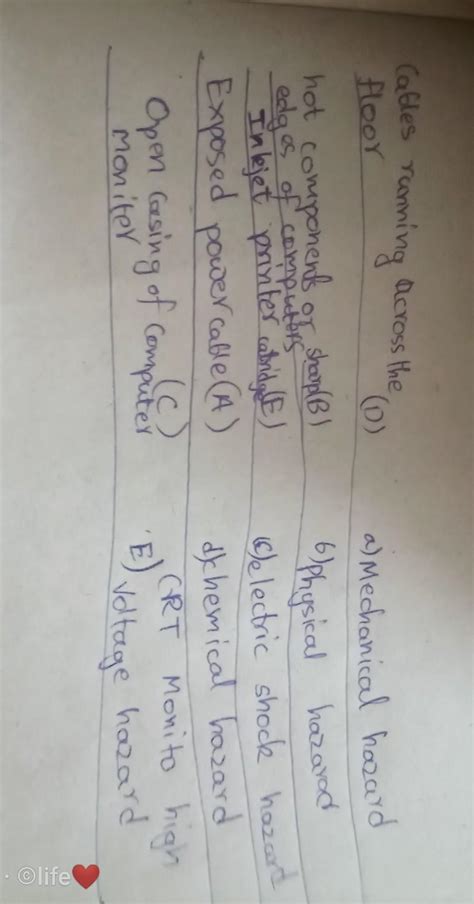 Cables running across the
floor (D) a) Mechanical hazard
hot components or sharp (B)
edges of computers b) Physical hazarad
Inkjet printer catridge (E) (c) electric shock hazard
Exposed power cable (A) d) chemical hazard
Open Casing of Computer (C)
Moniter
CRT Monito high
E) Voltage hazard
©life❤️